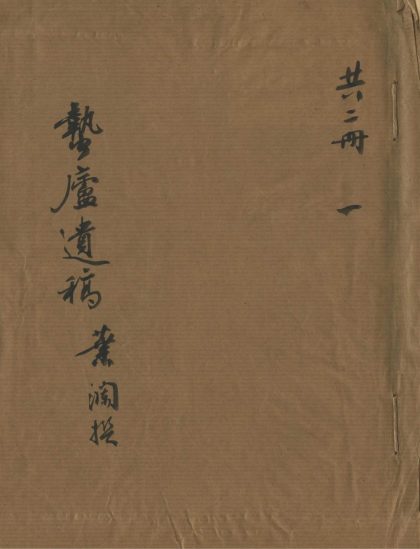 共二冊 一
蟄廬遺稿 葉瀾撰